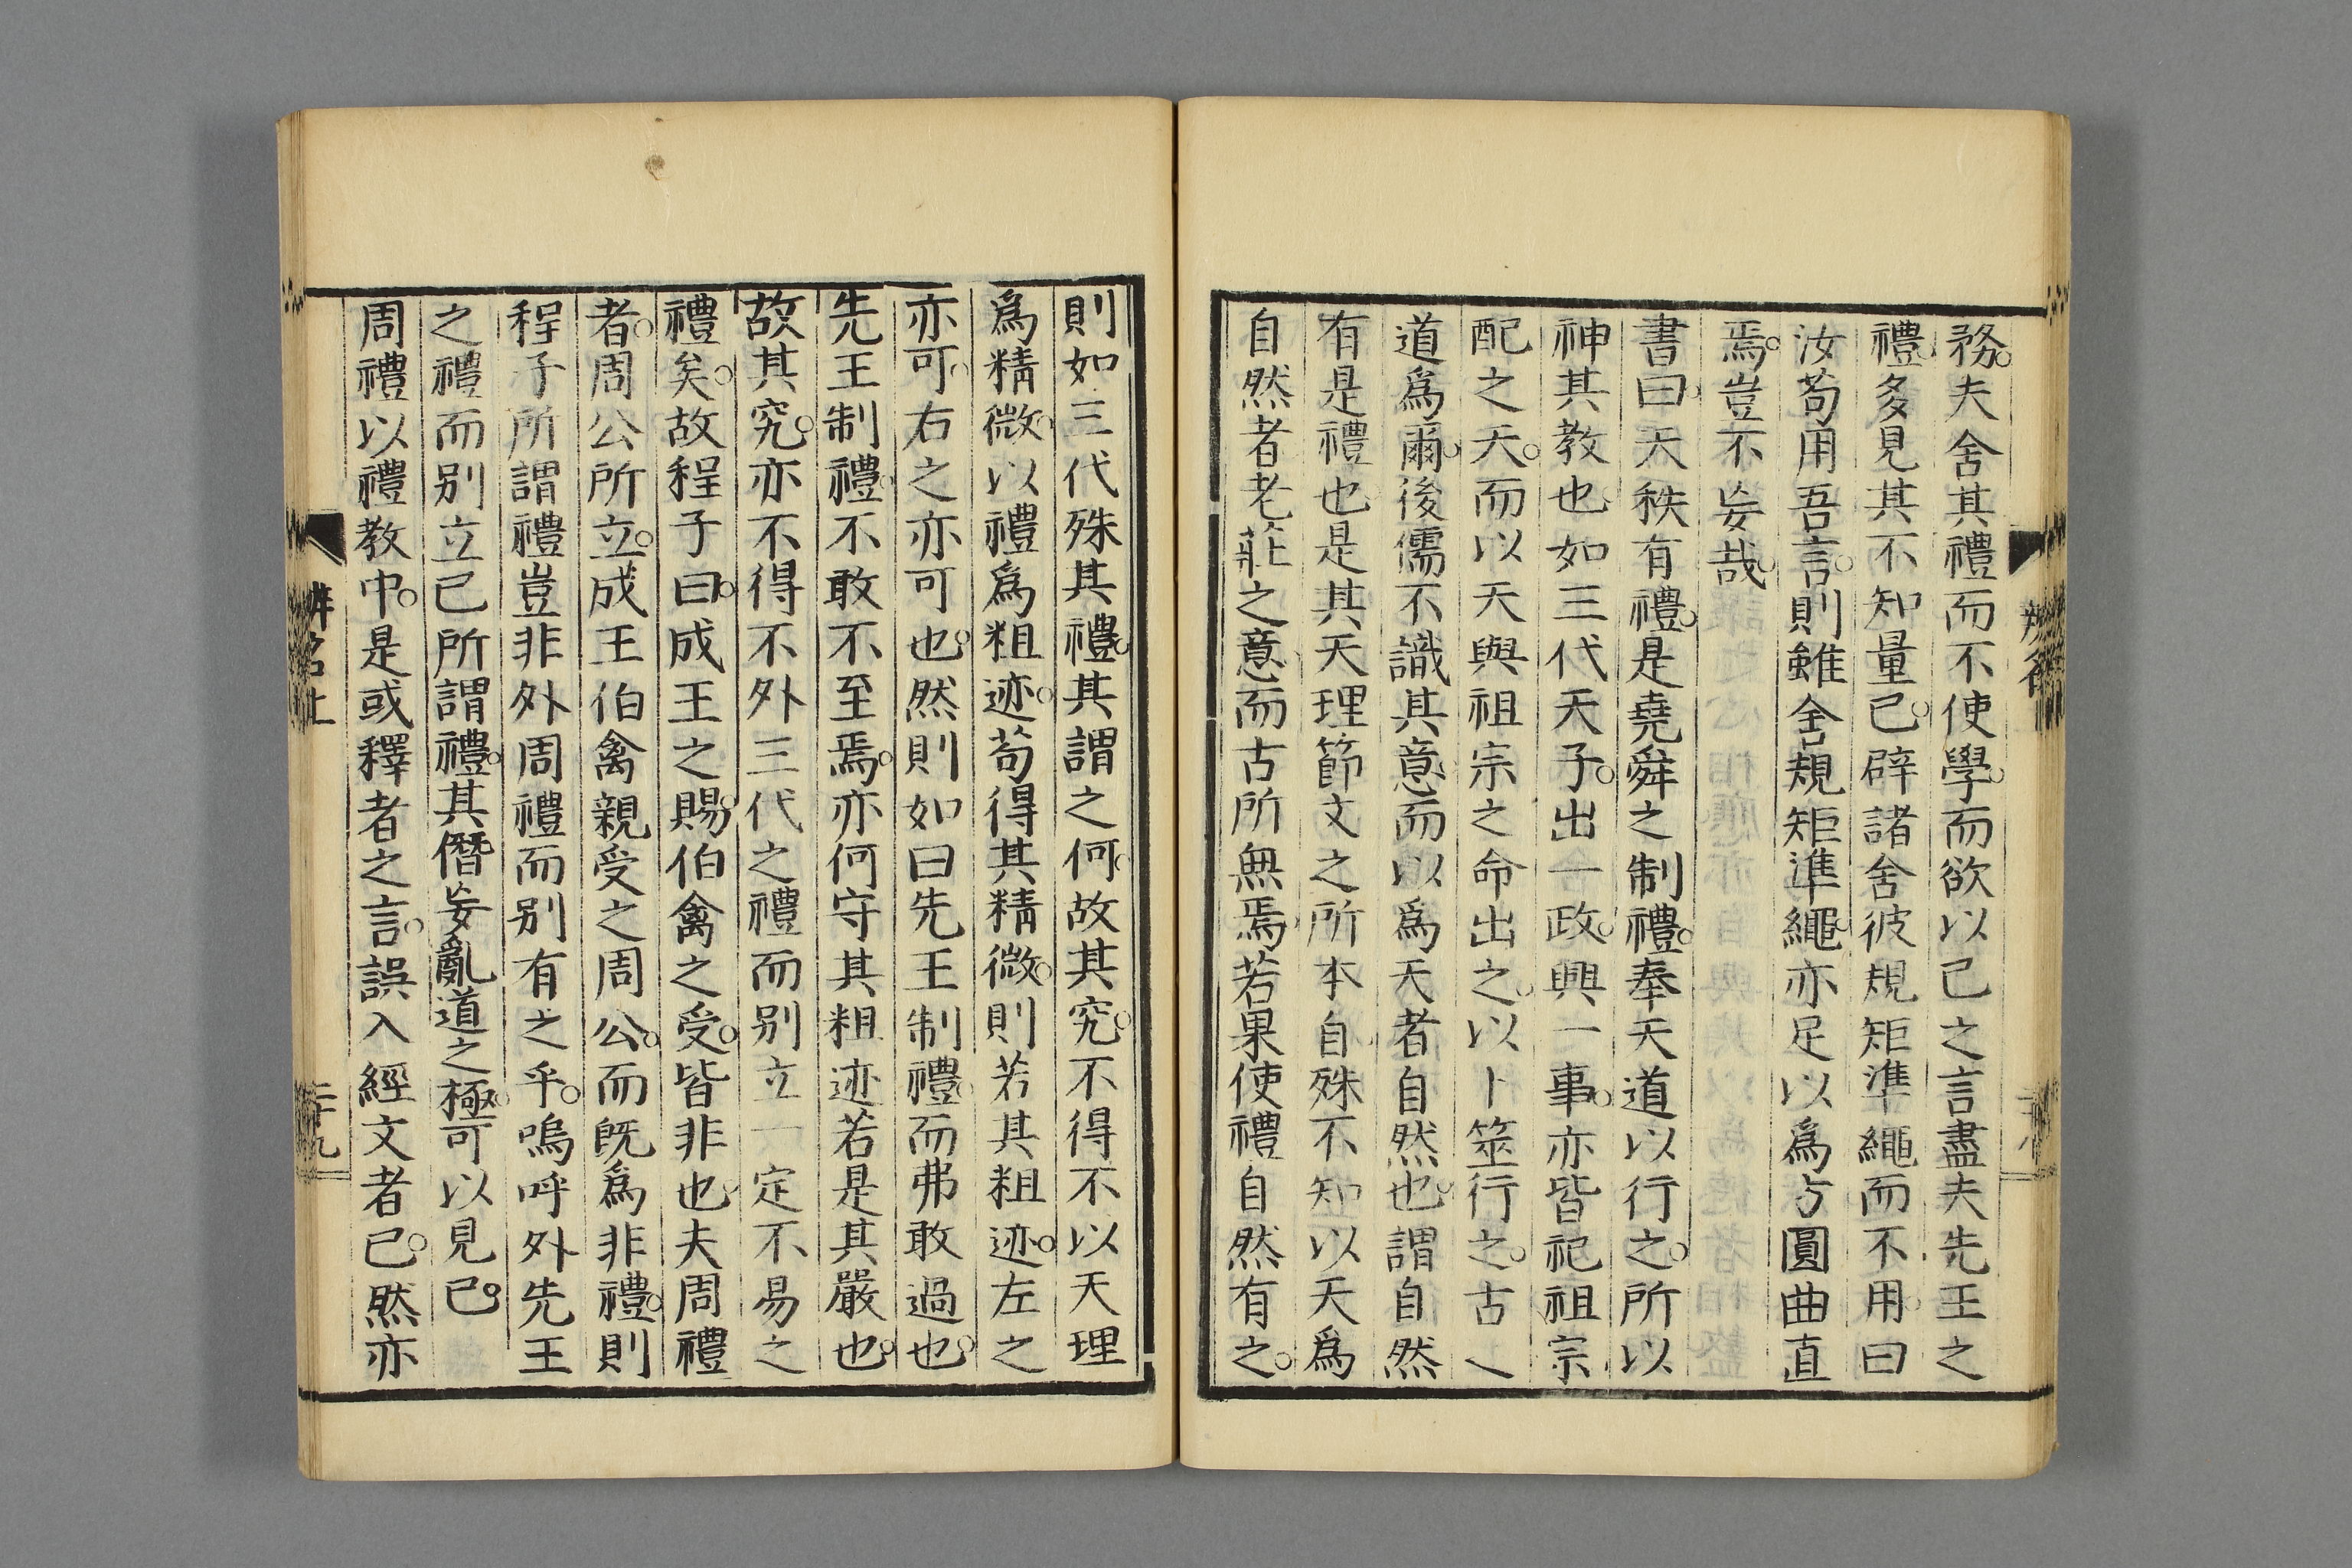 務。夫舍其禮而不使學。而欲以己之言盡夫先王之
禮。多見其不知量已。辟諸舍彼規矩準繩而不用。曰
汝苟用吾言。則雖舍規矩準繩。亦足以爲方圓曲直
焉。豈不妄哉。
書曰。天秩有禮。是堯舜之制禮。奉天道以行之。所以
神其教也。如三代天子。出一政。興一事。亦皆祀祖宗
配之天。而以天與祖宗之命出之。以卜筮行之。古之
道爲爾。後儒不識其意。而以爲天者自然也。謂自然
有是禮也。是其天理節文之所本自殊。不知以天爲
自然者。老莊之意。而古所無焉。若果使禮自然有之。
則如三代殊其禮。其謂之何。故其究。不得不以天理
爲精微。以禮爲粗迹。苟得其精微。則若其粗迹。左之
亦可。右之亦可也。然則如曰先王制禮。而弗敢過也。
先王制禮。不敢不至焉。亦何守其粗迹若是其嚴也。
故其究。亦不得不外三代之禮而別立一定不易之
禮矣。故程子曰。成王之賜。伯禽之受。皆非也。夫周禮
者。周公所立。成王伯禽親受之周公。而既爲非禮。則
程子所謂禮。豈非外周禮而別有之乎。嗚呼外先王
之禮而別立己所謂禮。其僭妄亂道之極。可以見已。
周禮以禮教中。是或釋者之言。誤入經文者已。然亦
辨名上
二十九